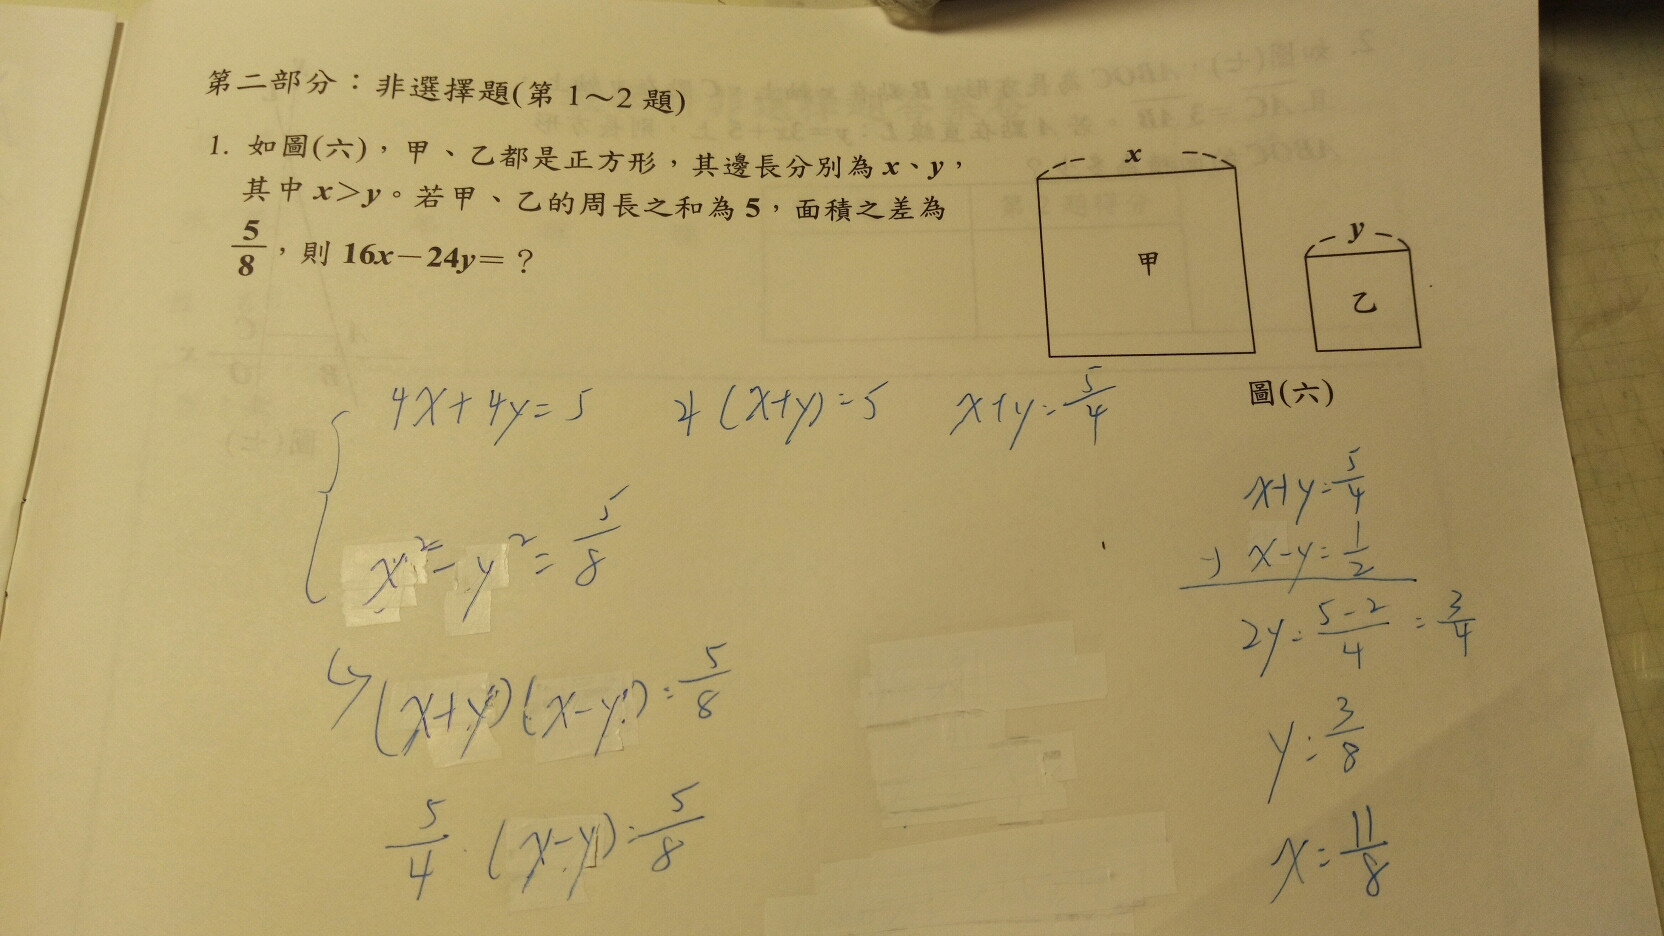 第二部分：非選擇題(第 1～2 題)
1. 如圖(六)，甲、乙都是正方形，其邊長分別為 x、y，
其中 x>y。若甲、乙的周長之和為 5，面積之差為
5/8，則 16x－24y=？
x
甲
y
乙
圖(六)
4x+4y=5 4(x+y)=5 x+y=5/4
x²-y²=5/8
↳(x+y)(x-y)=5/8
5/4·(x-y)=5/8
x+y=5/4
-) x-y=1/2
2y=5-2/4=3/4
y=3/8
x=11/8